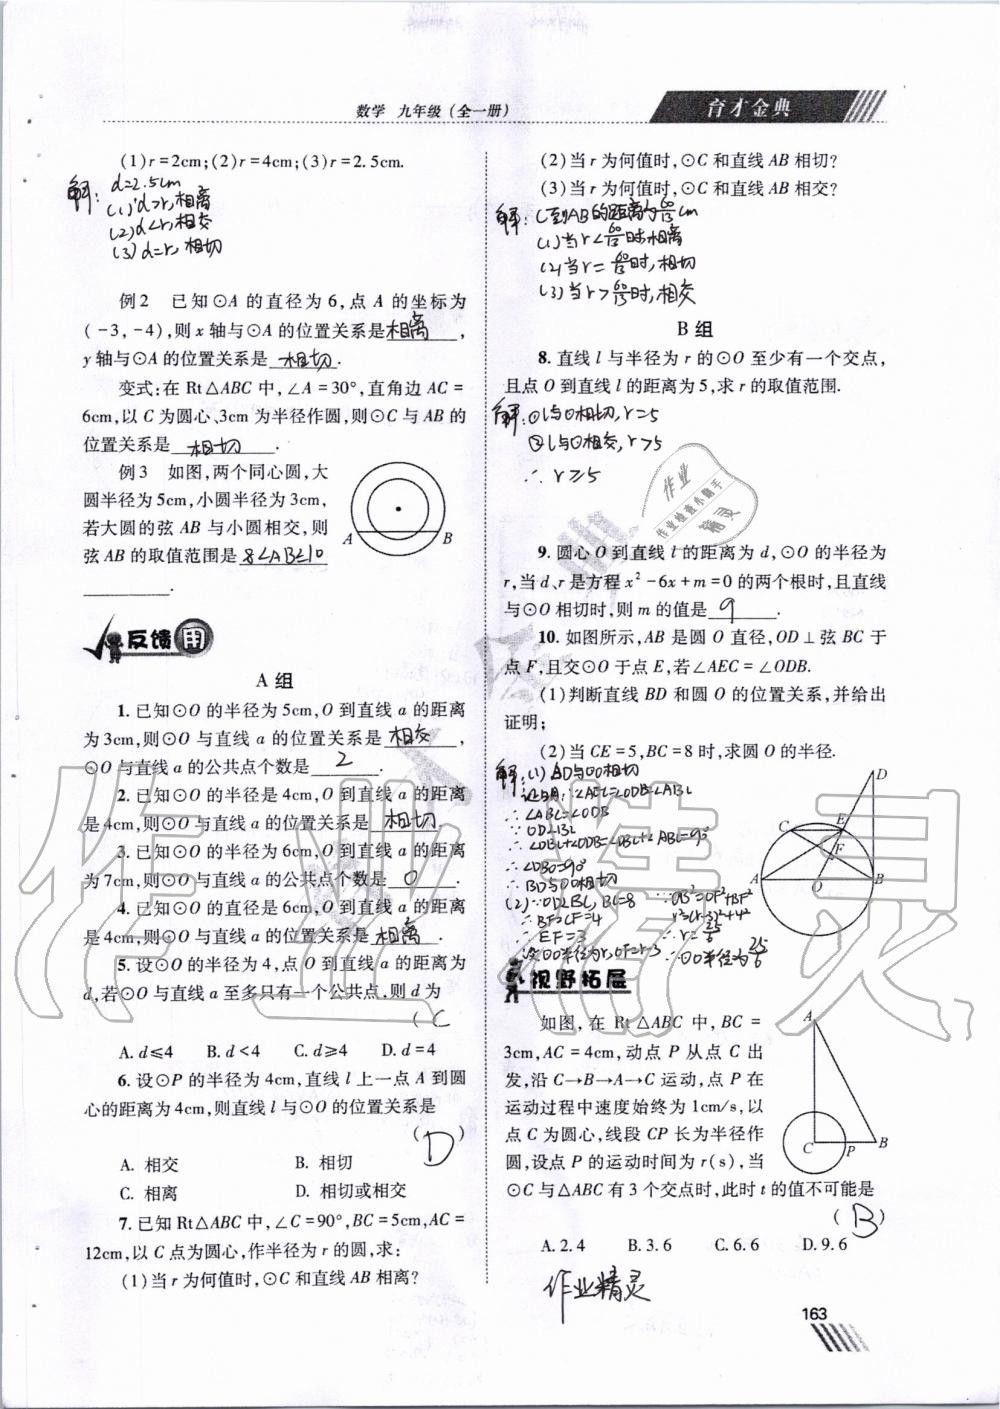 数学 九年级(全一册)
育才金典
(1)r=2cm;(2)r=4cm;(3)r=2.5cm.
解: d=2.5cm
(1)d>r,相离
(2)d<r,相交
(3)d=r,相切
例2 已知⊙A的直径为6,点A的坐标为
(-3,-4),则x轴与⊙A的位置关系是相离,
y轴与⊙A的位置关系是相切.
变式:在Rt△ABC中,∠A=30°,直角边AC=
6cm,以C为圆心、3cm为半径作圆,则⊙C与AB的
位置关系是相切.
例3 如图,两个同心圆,大
圆半径为5cm,小圆半径为3cm,
若大圆的弦AB与小圆相交,则
弦AB的取值范围是8<AB≤10
.
A B
反馈用
A组
1.已知⊙O的半径为5cm,O到直线a的距离
为3cm,则⊙O与直线a的位置关系是相交,
⊙O与直线a的公共点个数是2.
2.已知⊙O的半径是4cm,O到直线a的距离
是4cm,则⊙O与直线a的位置关系是相切.
3.已知⊙O的半径为6cm,O到直线a的距离
为7cm,则⊙O与直线a的公共点个数是0.
4.已知⊙O的直径是6cm,O到直线a的距离
是4cm,则⊙O与直线a的位置关系是相离.
5.设⊙O的半径为4,点O到直线a的距离为
d,若⊙O与直线a至多只有一个公共点,则d为
(C
A.d≤4 B.d<4 C.d≥4 D.d=4
6.设⊙P的半径为4cm,直线l上一点A到圆
心的距离为4cm,则直线l与⊙O的位置关系是
(D)
A. 相交 B. 相切
C. 相离 D. 相切或相交
7.已知Rt△ABC中,∠C=90°,BC=5cm,AC=
12cm,以C点为圆心,作半径为r的圆,求:
(1)当r为何值时,⊙C和直线AB相离?
(2)当r为何值时,⊙C和直线AB相切?
(3)当r为何值时,⊙C和直线AB相交?
解:C到AB的距离为60/13cm
(1)当r<60/13时,相离
(2)当r=60/13时,相切
(3)当r>60/13时,相交
B组
8.直线l与半径为r的⊙O至少有一个交点,
且点O到直线l的距离为5,求r的取值范围.
解:①l与O相切,r=5
②l与O相交,r>5
∴r≥5
作业
作业检查小助手
精灵
9.圆心O到直线l的距离为d,⊙O的半径为
r,当d、r是方程x²-6x+m=0的两个根时,且直线
与⊙O相切时,则m的值是9.
10.如图所示,AB是圆O直径,OD⊥弦BC于
点F,且交⊙O于点E,若∠AEC=∠ODB.
(1)判断直线BD和圆O的位置关系,并给出
证明;
(2)当CE=5,BC=8时,求圆O的半径.
解:(1)BD与⊙O相切
证明:∵∠AEC=∠ODB=∠ABC
∴∠ABC=∠ODB
∵OD⊥BC
∴∠DBC+∠ODB=∠DBC+∠ABC=90°
∴∠DBO=90°
∴BD与⊙O相切
(2)∵OD⊥BC,BC=8
∴BF=CF=4
∴EF=3
设⊙O半径为r,OF=r-3
∵OB²=OF²+BF²
r²=(r-3)²+4²
∴r=25/6
∴⊙O半径为25/6
D
C E
F
A O B
视野拓展
如图,在Rt△ABC中,BC=
3cm,AC=4cm,动点P从点C出
发,沿C→B→A→C运动,点P在
运动过程中速度始终为1cm/s,以
点C为圆心,线段CP长为半径作
圆,设点P的运动时间为r(s),当
⊙C与△ABC有3个交点时,此时t的值不可能是
(B)
A
C P B
A.2.4 B.3.6 C.6.6 D.9.6
作业精灵
163
作业精灵